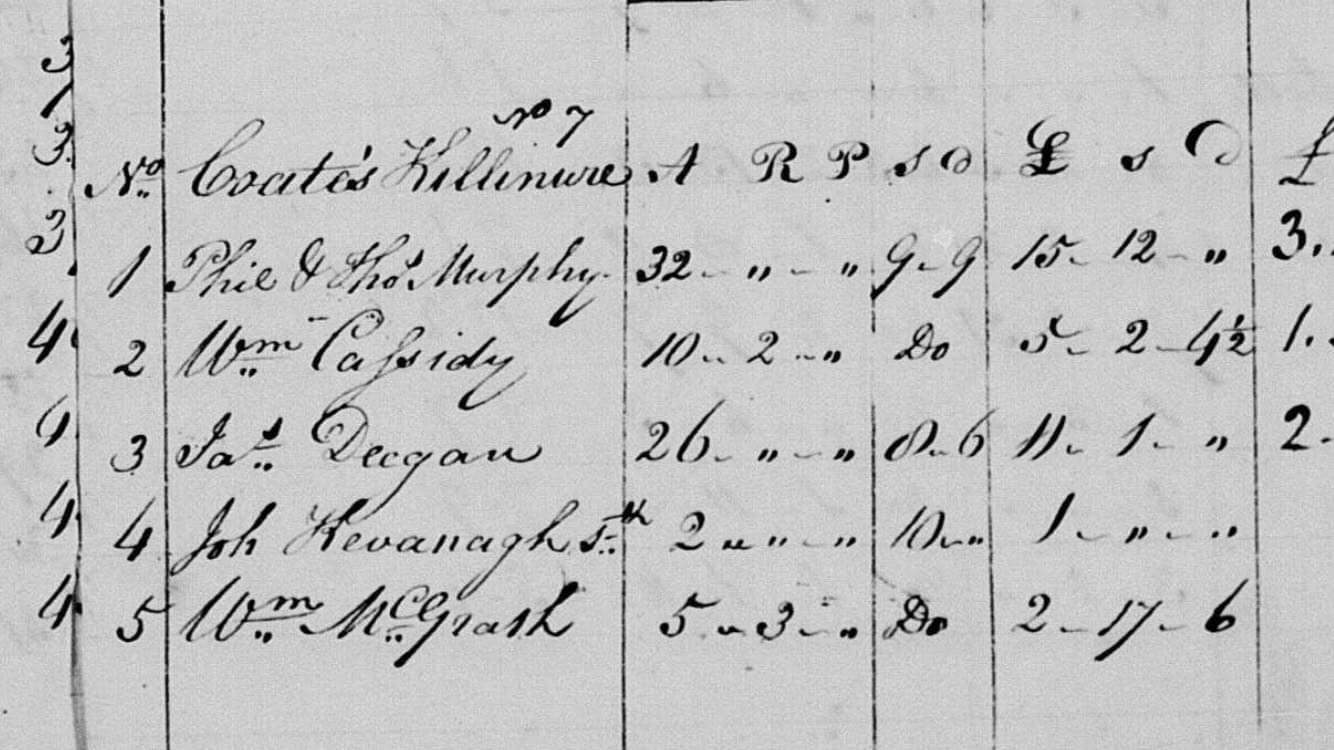 3
1
3
3
4
9
4
4
No 7
No Coate's Killinure A R P s d £ s d £
1 Phil & Thos Murphy 32 - " - " 9 - 9 15 - 12 - " 3.
2 Wm Cassidy 10 - 2 - " Do 5 - 2 - 4½ 1.
3 Jas Deegan 26 - " - " 8 - 6 11 - 1 - " 2.
4 Joh Kevanagh sth 2 - " - " 10 - " 1 - " - "
5 Wm McGrath 5 - 3 - " Do 2 - 17 - 6